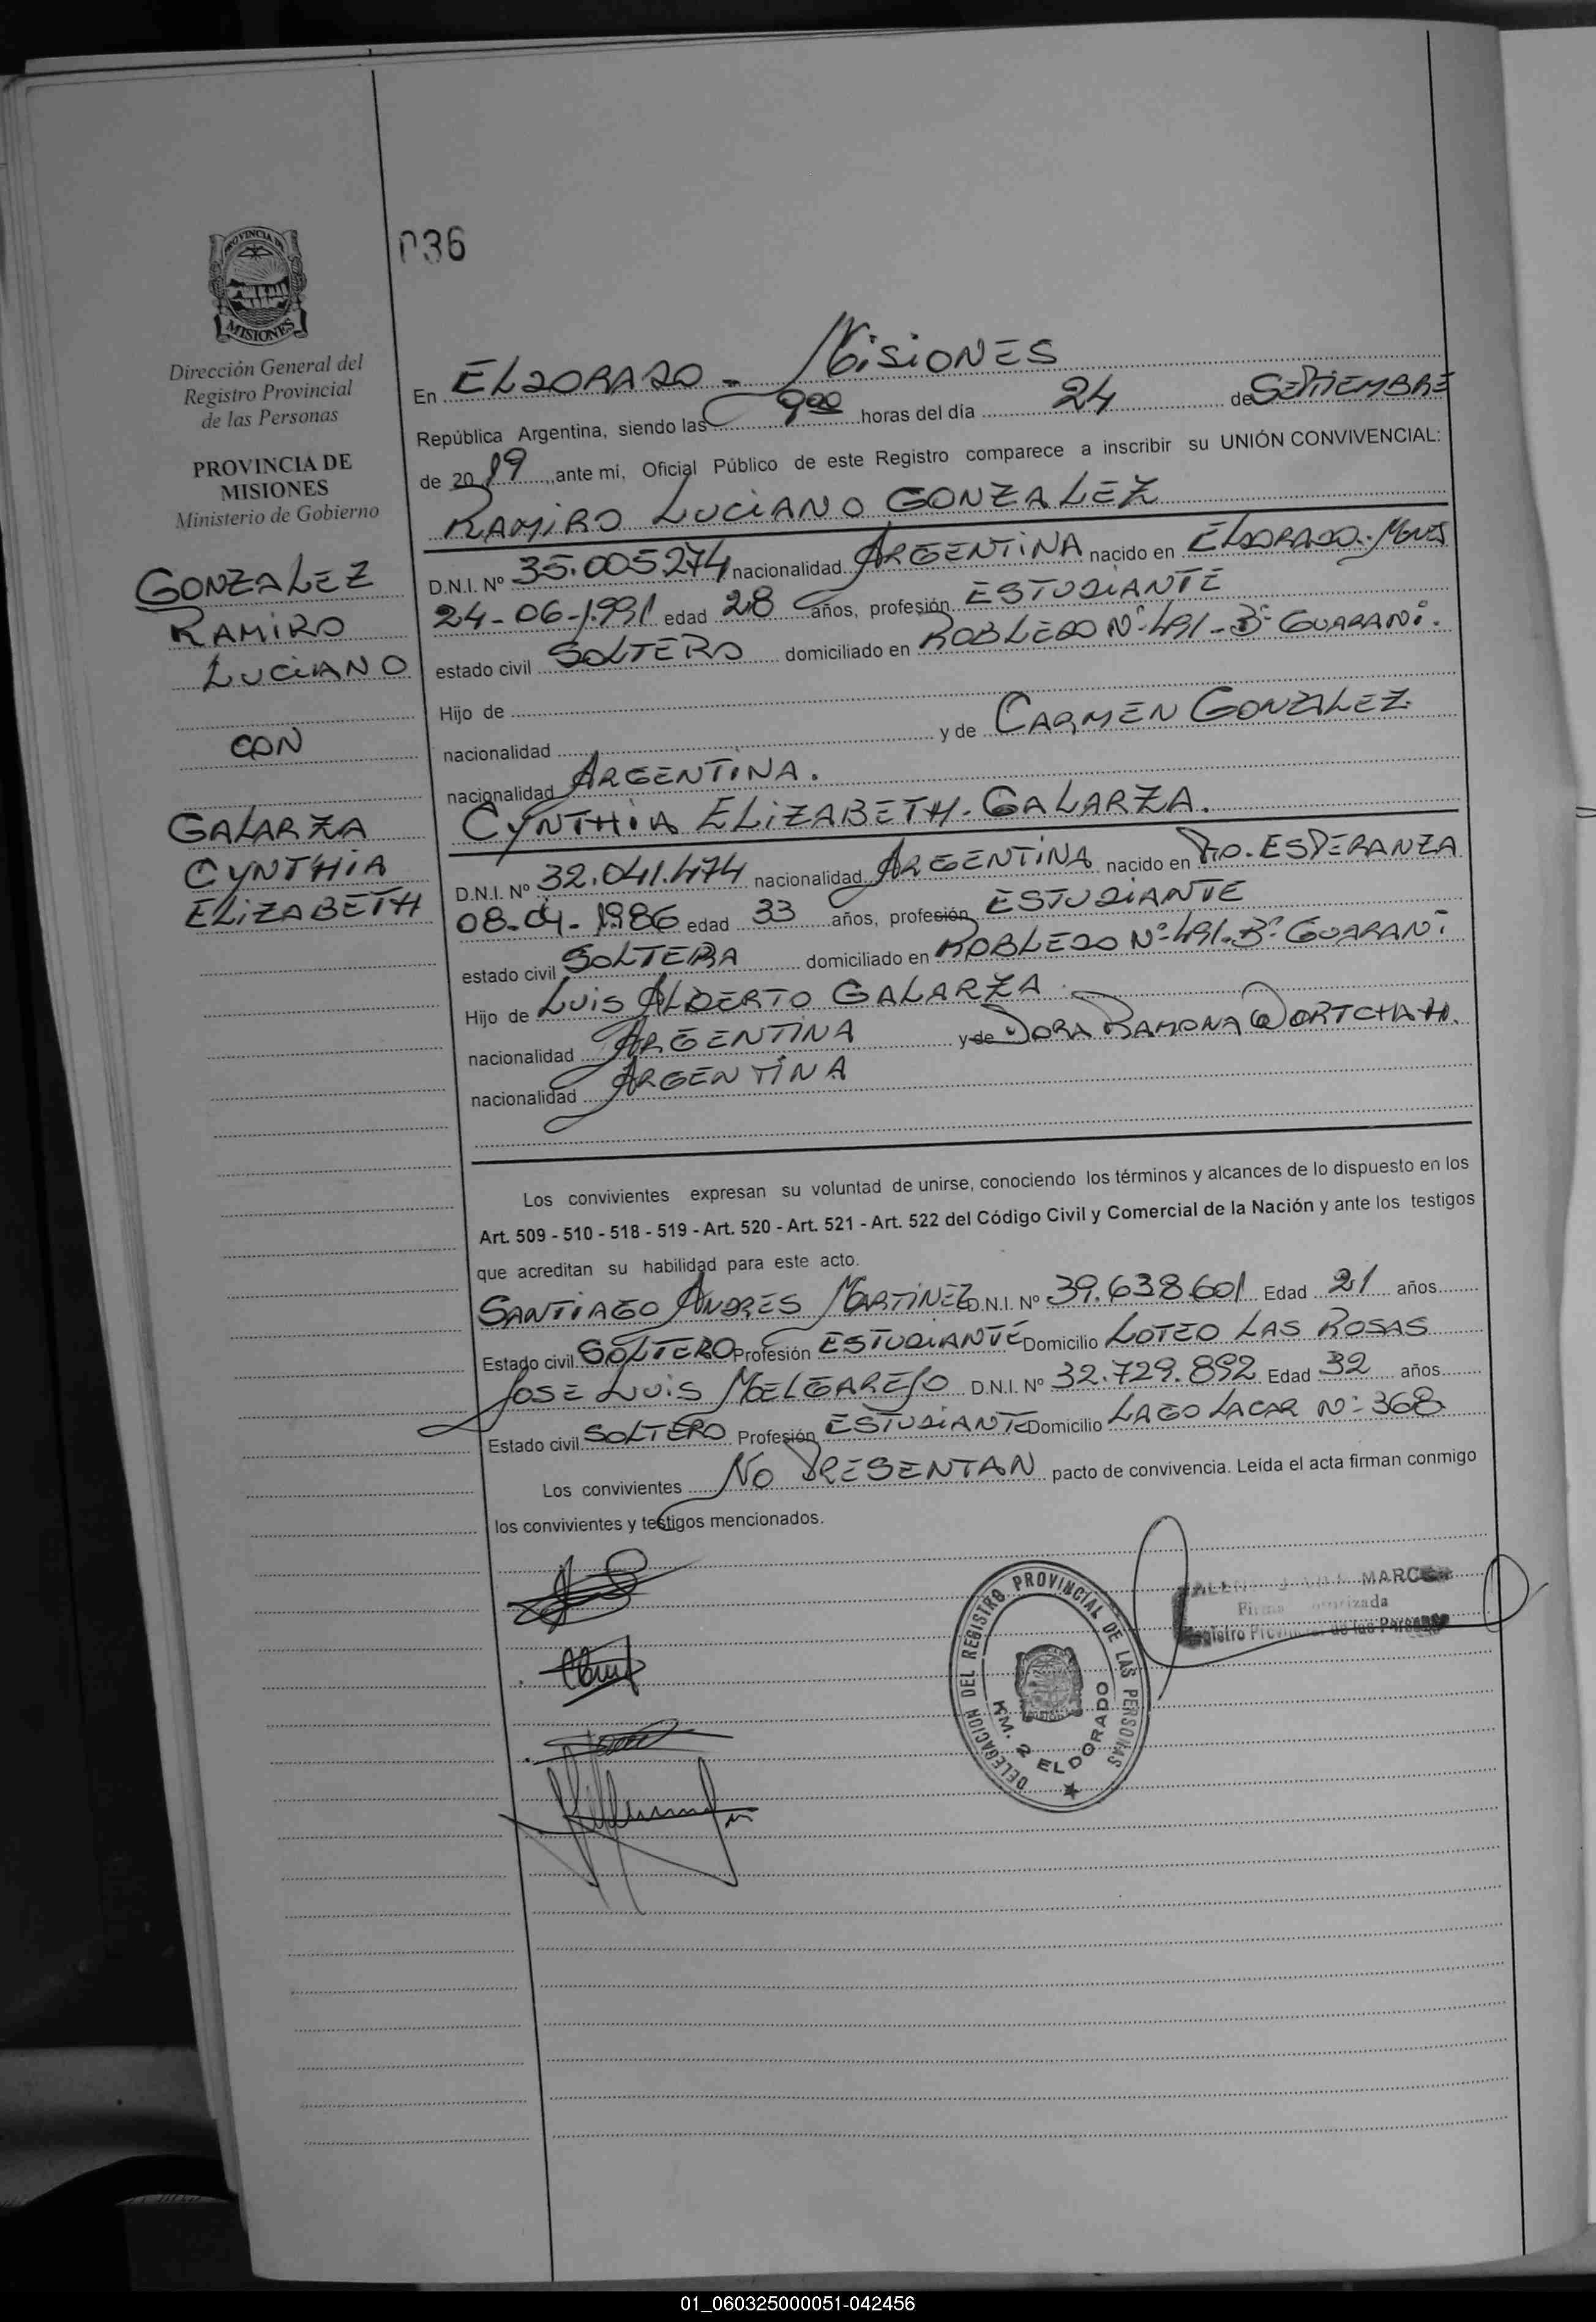 PROVINCIA DE
MISIONES
Dirección General del
Registro Provincial
de las Personas
PROVINCIA DE
MISIONES
Ministerio de Gobierno
GONZALEZ
RAMIRO
LUCIANO
CON
GALARZA
CYNTHIA
ELIZABETH
036
En ELDORADO - MISIONES
República Argentina, siendo las 9:00 horas del día 24 de SEPTIEMBRE
de 2019, ante mi, Oficial Público de este Registro comparece a inscribir su UNIÓN CONVIVENCIAL:
RAMIRO LUCIANO GONZALEZ
D.N.I. Nº 35.005274 nacionalidad ARGENTINA nacido en ELDORADO. MNES
24-06-1991 edad 28 años, profesión ESTUDIANTE
estado civil SOLTERO domiciliado en ROBLEDO Nº 491 - Bº GUARANI.
Hijo de
nacionalidad y de CARMEN GONZALEZ.
nacionalidad ARGENTINA.
CYNTHIA ELIZABETH. GALARZA.
D.N.I. Nº 32.041.474 nacionalidad ARGENTINA nacido en PTO. ESPERANZA
08-04-1986 edad 33 años, profesión ESTUDIANTE
estado civil SOLTERA domiciliado en ROBLEDO Nº 491. Bº GUARANI
Hijo de LUIS ALBERTO GALARZA
nacionalidad ARGENTINA y de DORA RAMONA WORTCHAH.
nacionalidad ARGENTINA
Los convivientes expresan su voluntad de unirse, conociendo los términos y alcances de lo dispuesto en los
Art. 509 - 510 - 518 - 519 - Art. 520 - Art. 521 - Art. 522 del Código Civil y Comercial de la Nación y ante los testigos
que acreditan su habilidad para este acto.
SANTIAGO ANDRES MARTINEZ D.N.I. Nº 39.638.601 Edad 21 años
Estado civil SOLTERO Profesión ESTUDIANTE Domicilio LOTEO LAS ROSAS
JOSE LUIS MELGAREJO D.N.I. Nº 32.729.892 Edad 32 años
Estado civil SOLTERO Profesión ESTUDIANTE Domicilio LAGO LACAR Nº 368
Los convivientes NO PRESENTAN pacto de convivencia. Leída el acta firman conmigo
los convivientes y testigos mencionados.
DELEGACION DEL REGISTRO PROVINCIAL DE LAS PERSONAS
KM. 2 ELDORADO
Registro Provincial de las Personas
01_060325000051-042456